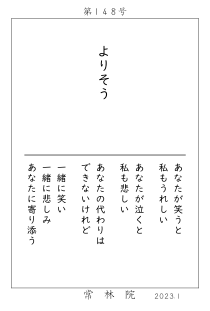 第148号
よりそう
あなたが笑うと
私もうれしい
あなたが泣くと
私も悲しい
あなたの代わりは
できないけれど
一緒に笑い
一緒に悲しみ
あなたに寄り添う
常林院 2023.1